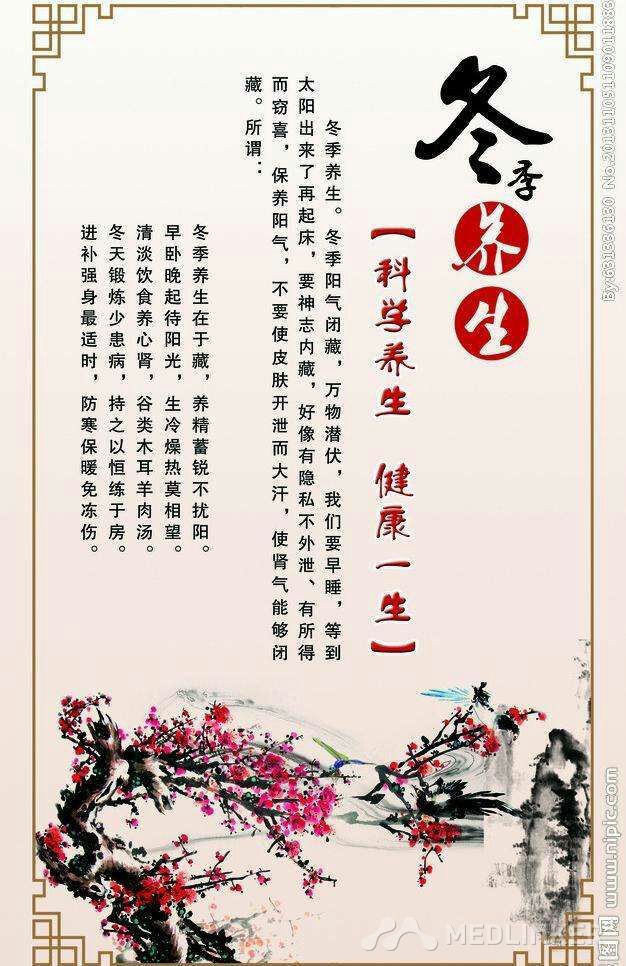 冬季养生
【科学养生 健康一生】
冬季养生。冬季阳气闭藏，万物潜伏，我们要早睡，等到
太阳出来了再起床，要神志内藏，好像有隐私不外泄、有所得
而窃喜，保养阳气，不要使皮肤开泄而大汗，使肾气能够闭
藏。所谓：
冬季养生在于藏，养精蓄锐不扰阳。
早卧晚起待阳光，生冷燥热莫相望。
清淡饮食养心肾，谷类木耳羊肉汤。
冬天锻炼少患病，持之以恒练于房。
进补强身最适时，防寒保暖免冻伤。
By:631336130 No.20131105110901188
www.nipic.com
图网
MEDLINKER